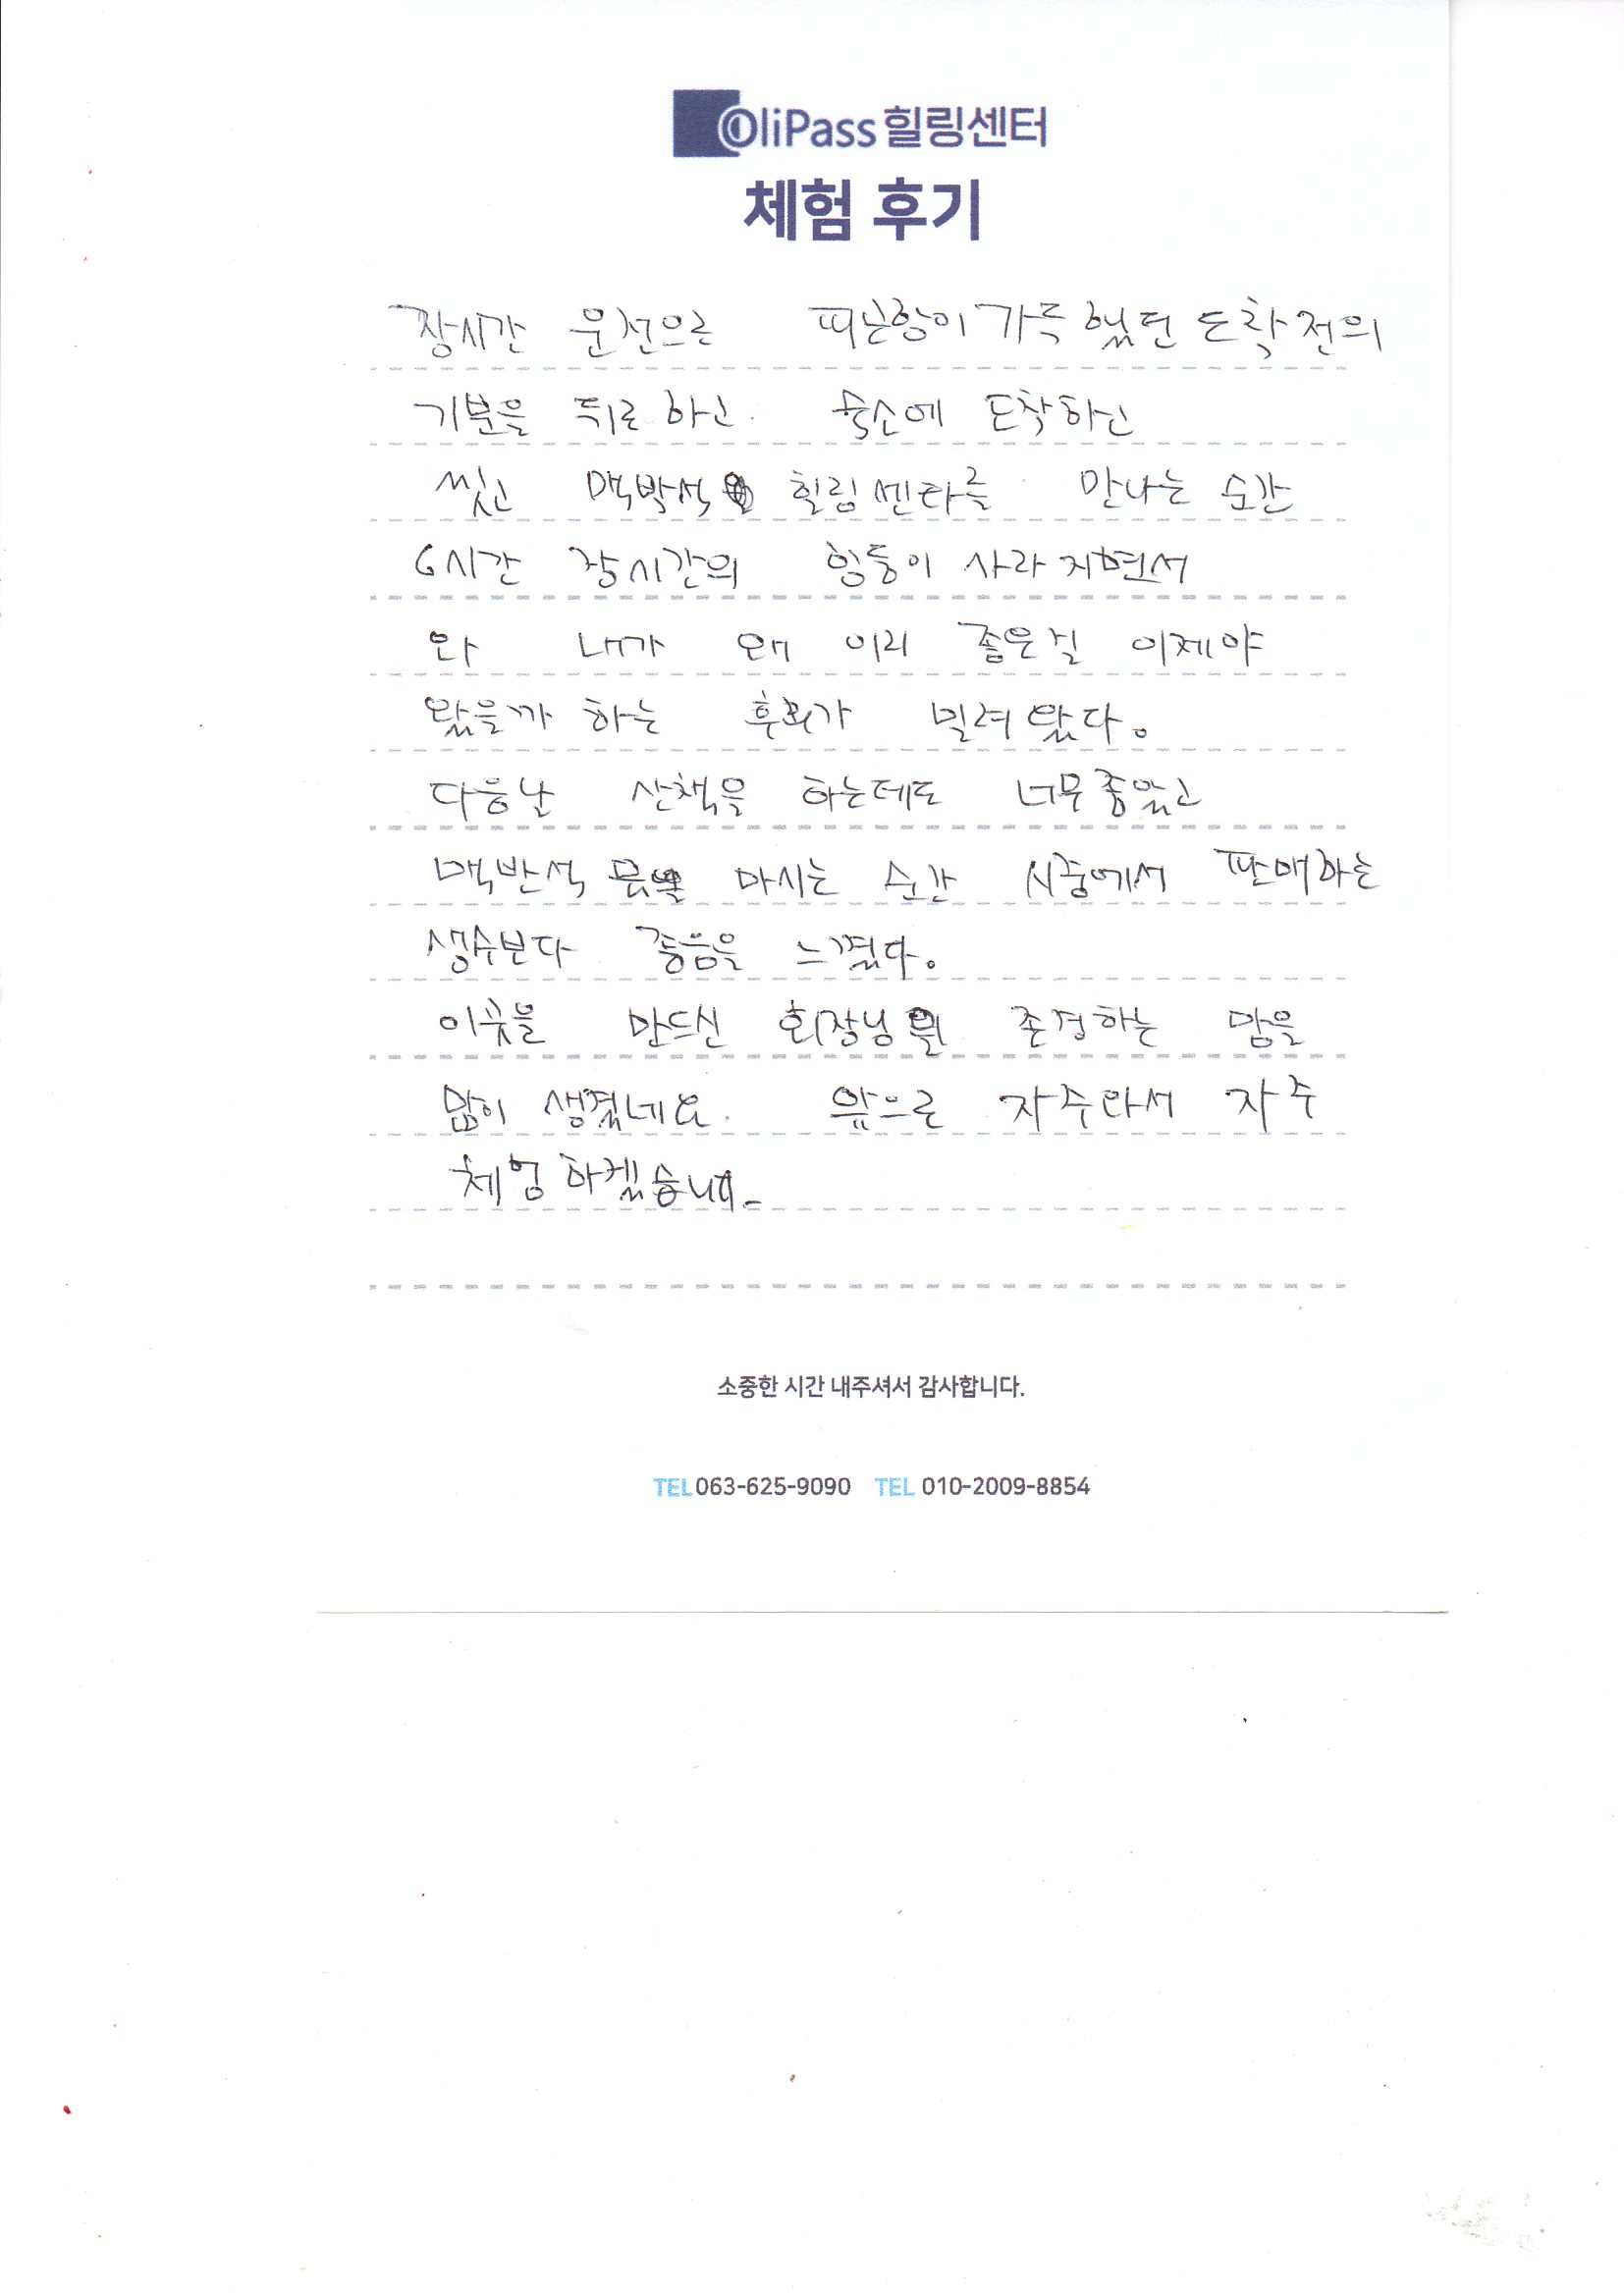 OliPass 힐링센터
체험 후기
장시간 운전으로 피곤함이 가득했던 도착전의
기분을 뒤로하고 숙소에 도착하고
씻고 맥박석 힐링센타를 만나는 순간
6시간 장시간의 힘듬이 사라지면서
와 내가 왜 이리 좋은걸 이제야
왔을까 하는 후회가 밀려왔다.
다음날 산책을 하는데도 너무좋았고
맥반석 물을 마시는 순간 시중에서 판매하는
생수보다 좋음을 느꼈다.
이곳을 만드신 회장님의 존경하는 맘을
많이 생겼네요. 앞으로 자주와서 자주
체험하겠습니다.
소중한 시간 내주셔서 감사합니다.
TEL 063-625-9090 TEL 010-2009-8854